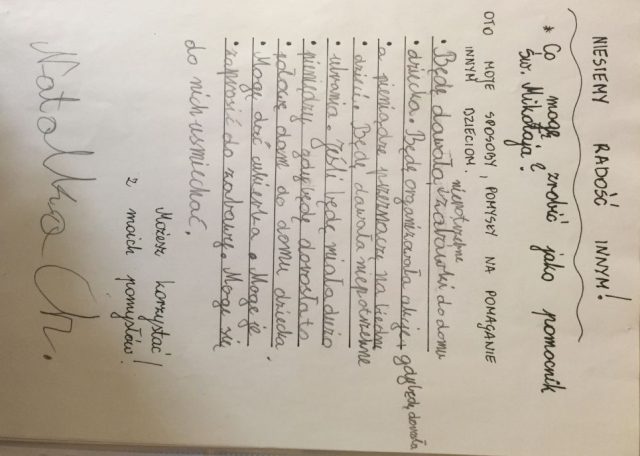 NIESIEMY RADOŚĆ INNYM!
* Co mogę zrobić jako pomocnik
św. Mikołaja?
OTO MOJE SPOSOBY, POMYSŁY NA POMAGANIE
INNYM DZIECIOM.
niepotrzebne
• Będę dawała zabawki do domu
• dziecka. Będę organizowała akcje, gdy będę dorosła
• a pieniądze przeznaczę na biedne
• dzieci. Będę dawała niepotrzebne
• ubrania. Jeśli będę miała dużo
• pieniędzy gdy będę dorosła to
• połowę dam do domu dziecka.
• Mogę dać cukierka. Mogę je
• zaprosić do zabawy. Mogę się
do nich uśmiechać.
Możesz korzystać
z moich pomysłów!
Natalka Ch.